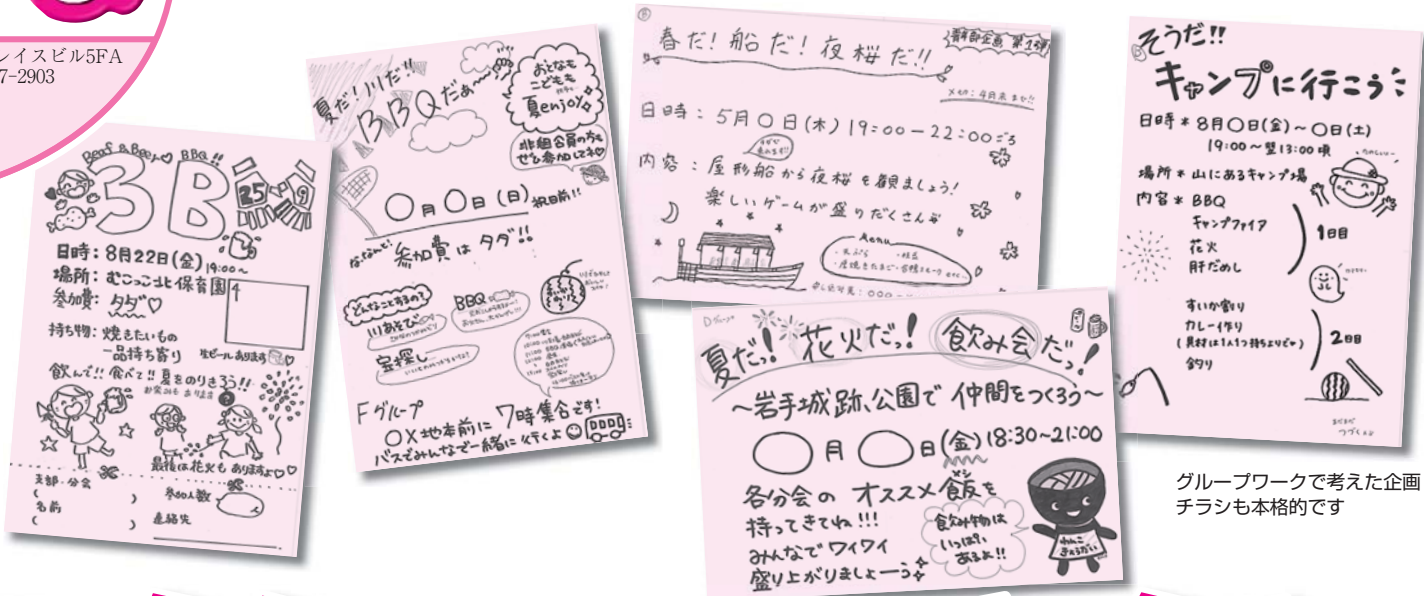 レイスビル5FA
7-2903
Beef & Beer♡ BBQ!!
3B
日時：8月22日(金)19:00～
場所：むこっこ北保育園
参加費：タダ♡
持ち物：焼きたいもの
一品持ち寄り
生ビールあります♡
飲んで!!食べて!!夏をのりきろう!!
お菓子もあります
最後は花火もありますよ♡♡
支部・分会
(　　　)
名前
(　　　)
参加人数
連絡先
夏だ!川だ!!
BBQだぁ～
おとなも
こどもも
夏enjoy
非組合員の方も
ぜひ参加してネ♡
〇月〇日(日)祝日前!!
なな、なんと!参加費はタダ!!
どんなことするの?
川あそび
BBQ
宝探し
Fグループ
〇×地本前に7時集合です!
バスでみんなで一緒に行くよ
B
青年部企画 第1弾
春だ!船だ!夜桜だ!!
〆切：4月末まで!!
日時：5月〇日(木)19:00－22:00ごろ
内容：屋形船から夜桜を観ましょう!
楽しいゲームが盛りだくさん
Menu
・天ぷら
・枝豆
Dグループ
夏だっ!花火だっ!飲み会だっ!
～岩手城跡公園で仲間をつくろう～
〇月〇日(金)18:30～21:00
各分会のオススメ飯を
持ってきてね!!!
みんなでワイワイ
盛り上がりましょーう
飲み物は
いっぱい
あるよ!!
わんこ
きょうだい
そうだ!!
キャンプに行こう
日時＊8月〇日(金)～〇日(土)
19:00～翌13:00頃
場所＊山にあるキャンプ場
内容＊BBQ
キャンプファイア
花火
肝だめし
1日目
すいか割り
カレー作り
(具材は1人1つ持ちより♡)
釣り
2日目
グループワークで考えた企画
チラシも本格的です